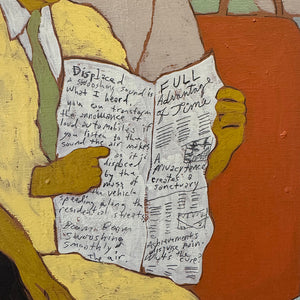 Displaced
a swooshing sound is
What I heard.
you can transform
the annoyance of
loud automobiles if
you listen to the
sound the air makes
as it is
displaced
by the
mass of
the vehicle
speeding along the
residential streets.
Boooom Boooom
Swooshing
Smoothly
The air
FULL
Advantage
of Time
A
privacy fence
creates a
sanctuary
Achievements
disguise pain
what's the cure?